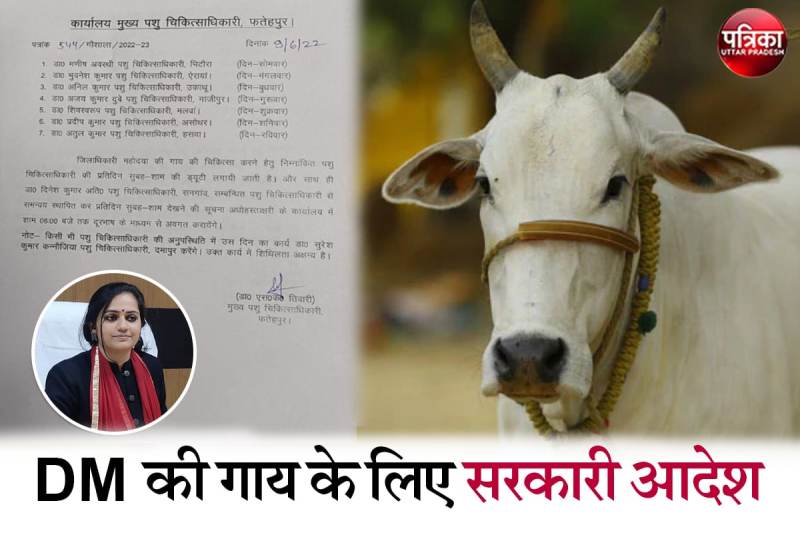 कार्यालय मुख्य पशु चिकित्साधिकारी, फतेहपुर।
पत्रांक 544/गौशाला/2022-23 दिनांक 9/6/22
1. डा0 मनीष अवस्थी पशु चिकित्साधिकारी, भिटौरा (दिन-सोमवार)
2. डा0 भुवनेश कुमार पशु चिकित्साधिकारी, ऐरायां (दिन-मंगलवार)
3. डा0 अनिल कुमार पशु चिकित्साधिकारी, उकाथू (दिन-बुधवार)
4. डा0 अजय कुमार दुबे पशु चिकित्साधिकारी, गाजीपुर। (दिन-गुरूवार)
5. डा0 शिवस्वरूप पशु चिकित्साधिकारी, मलवां। (दिन-शुक्रवार)
6. डा0 प्रदीप कुमार पशु चिकित्साधिकारी, असोथर। (दिन-शनिवार)
7. डा0 अतुल कुमार पशु चिकित्साधिकारी, हसवा। (दिन-रविवार)
जिलाधिकारी महोदया की गाय की चिकित्सा करने हेतु निम्नांकित पशु
चिकित्साधिकारी की प्रतिदिन सुबह-शाम की ड्यूटी लगायी जाती है। और साथ ही
डा0 दिनेश कुमार अति0 पशु चिकित्साधिकारी, सानगांव, सम्बन्धित पशु चिकित्साधिकारी से
समन्वय स्थापित कर प्रतिदिन सुबह-शाम देखने की सूचना अधोहस्ताक्षरी के कार्यालय में
शाम 06:00 बजे तक दूरभाष के माध्यम से अवगत करायेंगे।
नोट- किसी भी पशु चिकित्साधिकारी की अनुपस्थिति में उस दिन का कार्य डा0 सुरेश
कुमार कन्नौजिया पशु चिकित्साधिकारी, दमापुर करेंगे। उक्त कार्य में शिथिलता अक्षम्य है।
(डा0 एस0के0 तिवारी)
मुख्य पशु चिकित्साधिकारी,
फतेहपुर।
पत्रिका
UTTAR PRADESH
DM की गाय के लिए सरकारी आदेश